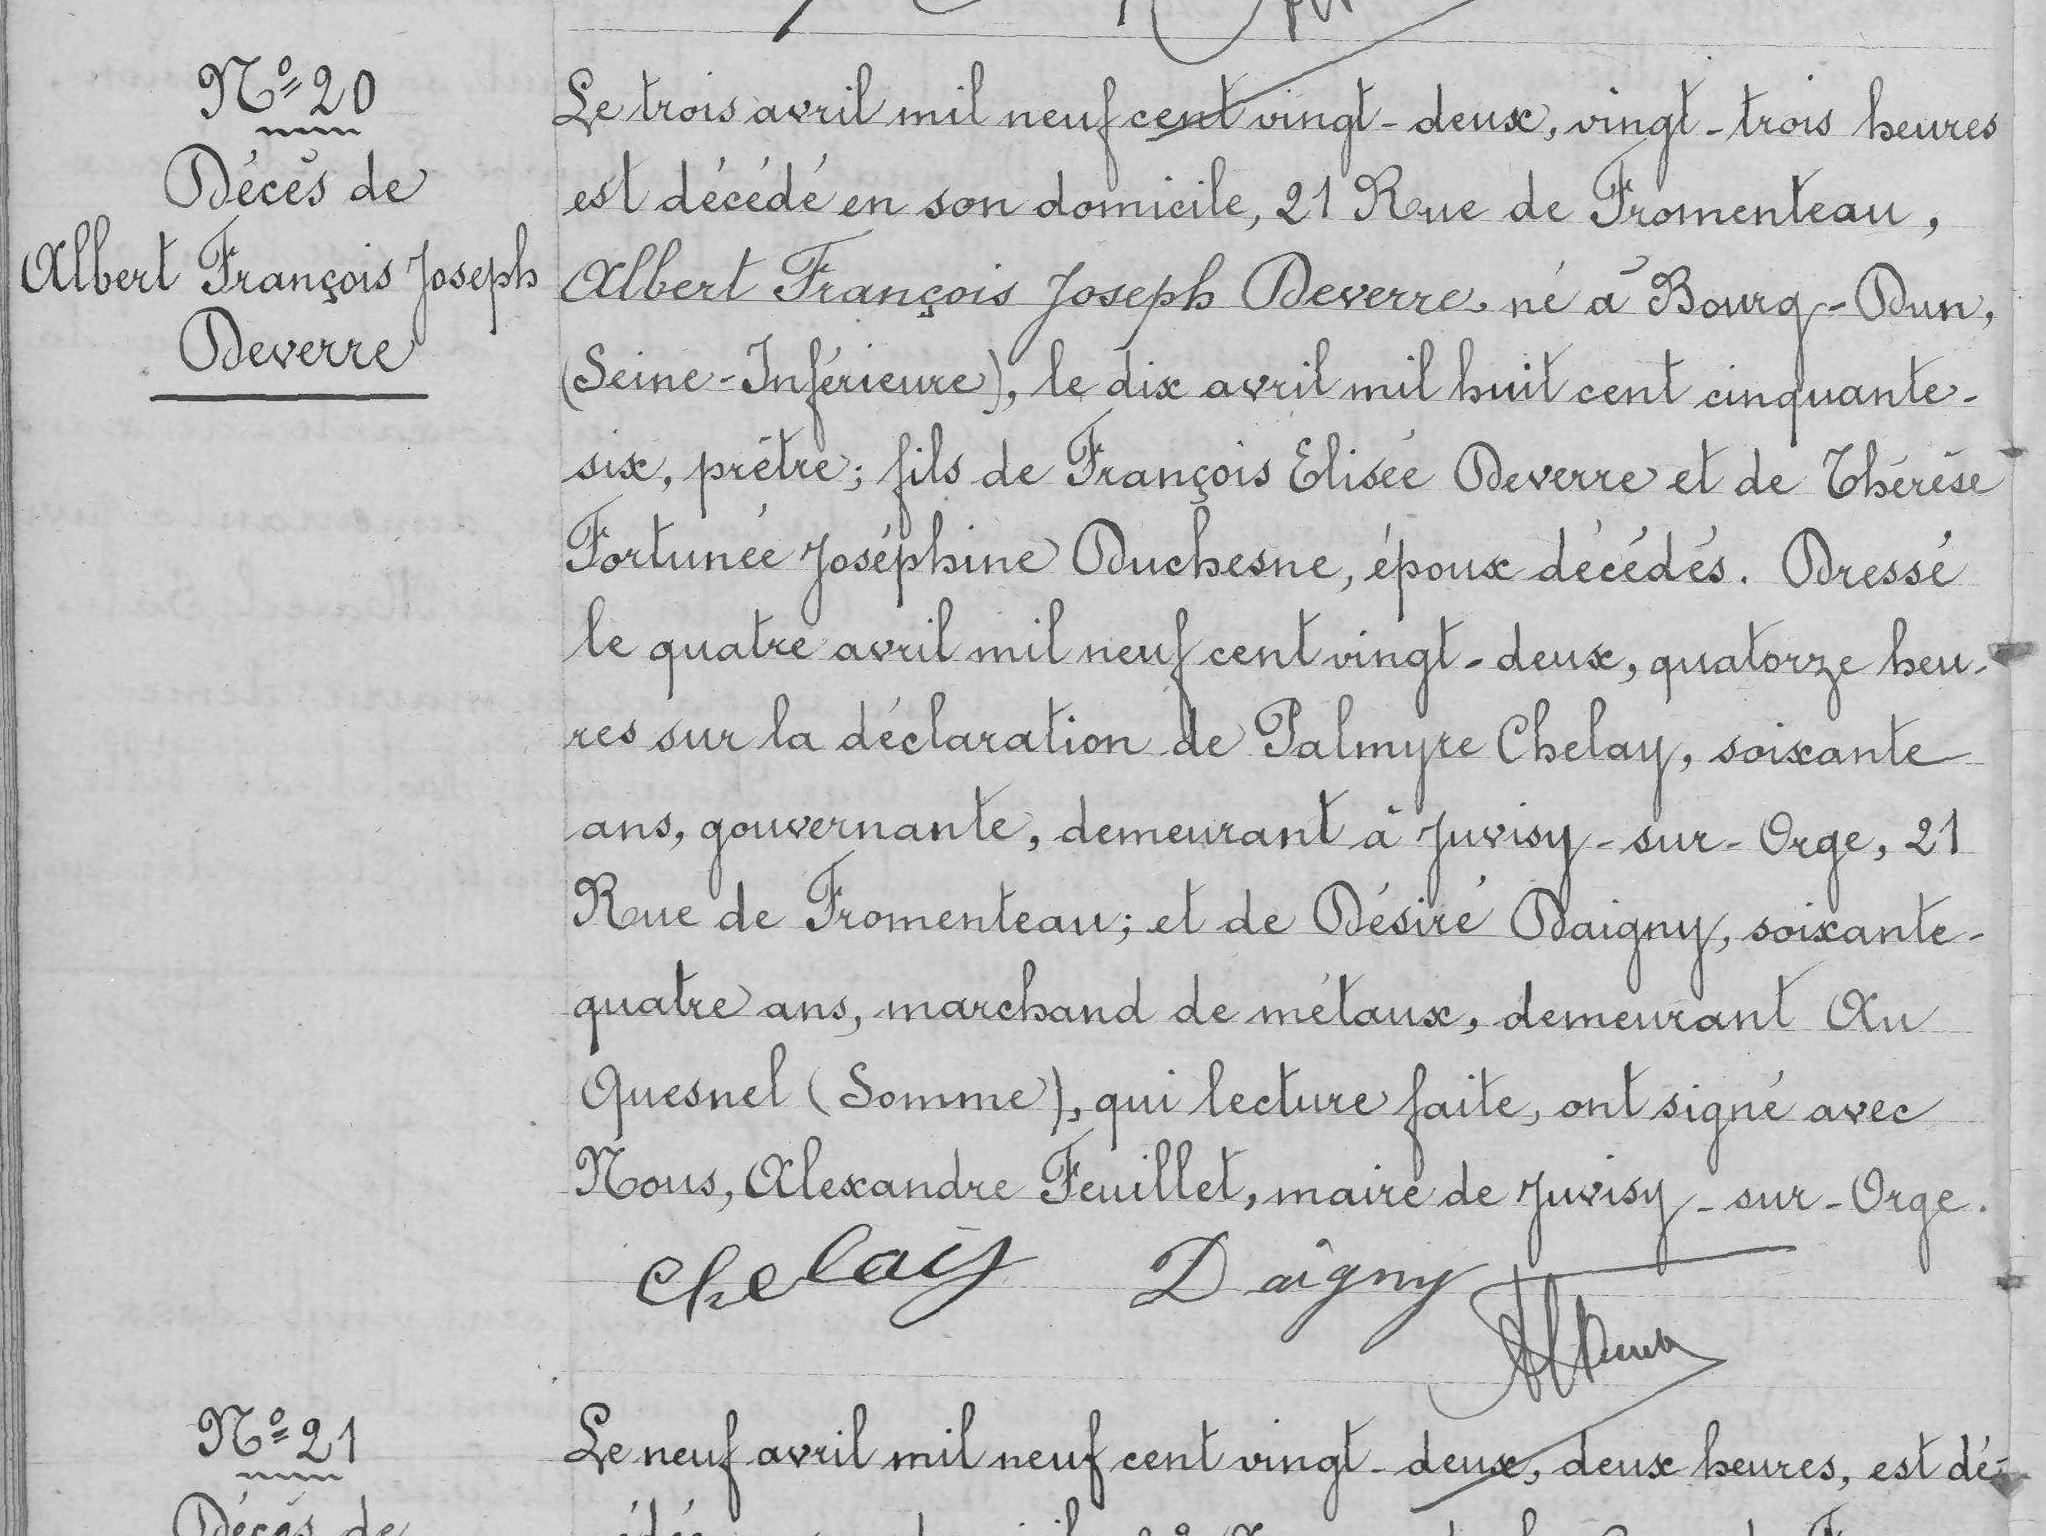 Nº 20
Décès de
Albert François Joseph
Deverre
Le trois avril mil neuf cent vingt-deux, vingt-trois heures
est décédé en son domicile, 21 Rue de Fromenteau,
Albert François Joseph Deverre, né à Bourg-Dun,
(Seine-Inférieure), le dix avril mil huit cent cinquante-
six, prêtre; fils de François Elisée Deverre et de Thérèse
Fortunée Joséphine Duchesne, époux décédés. Dressé
le quatre avril mil neuf cent vingt-deux, quatorze heu-
res sur la déclaration de Palmyre Chelay, soixante
ans, gouvernante, demeurant à Juvisy-sur-Orge, 21
Rue de Fromenteau; et de Désiré Daigny, soixante-
quatre ans, marchand de métaux, demeurant Au
Quesnel (Somme), qui lecture faite, ont signé avec
Nous, Alexandre Feuillet, maire de Juvisy-sur-Orge.
Chelay Daigny
Nº 21
Décès de
Le neuf avril mil neuf cent vingt-deux, deux heures, est dé-